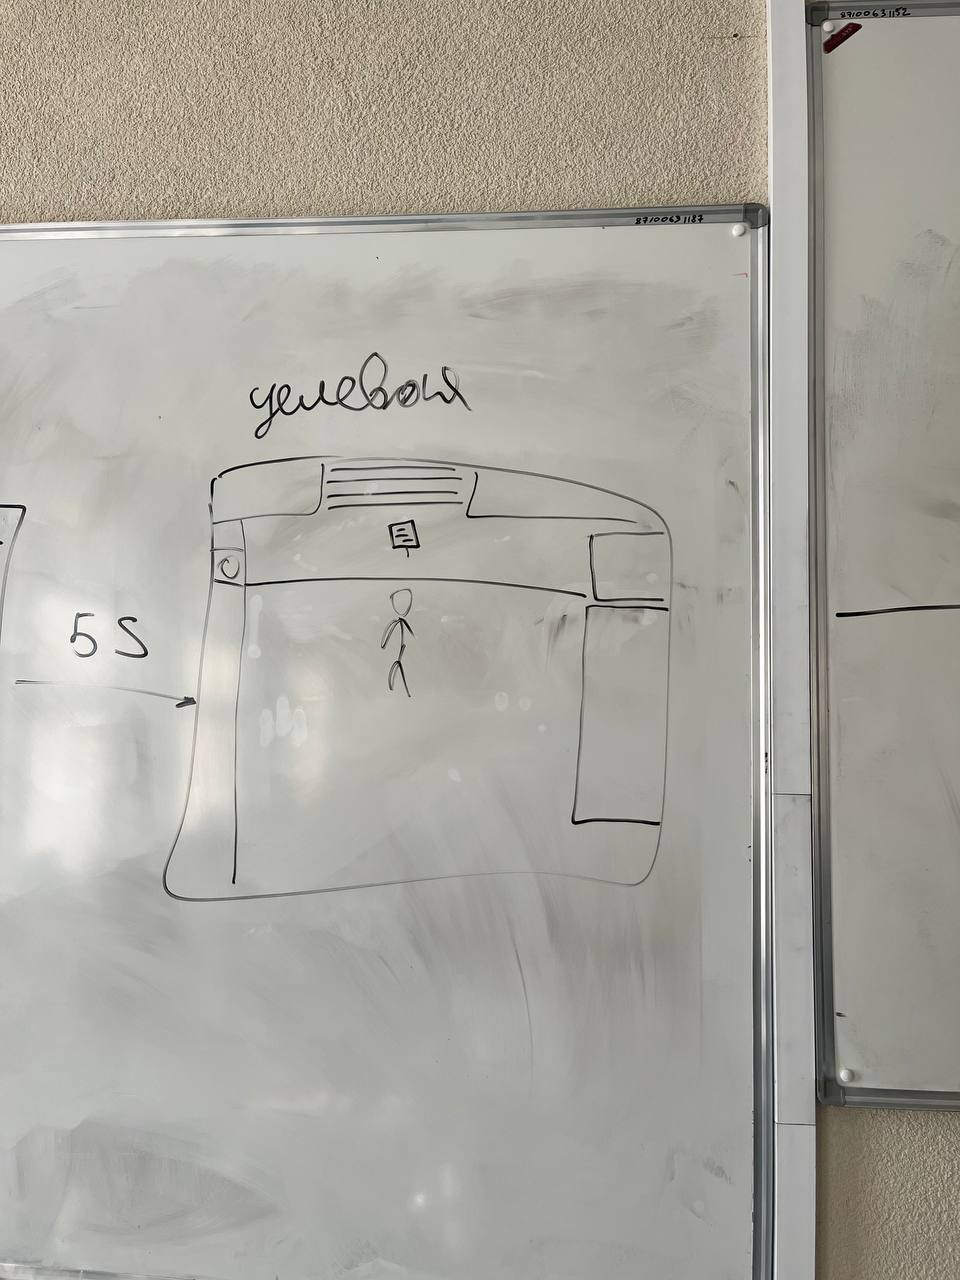 87100631152
87100631187
целевая
5S